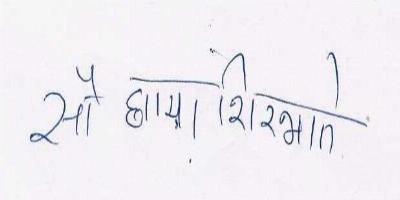 सौ छाया शिरभाते